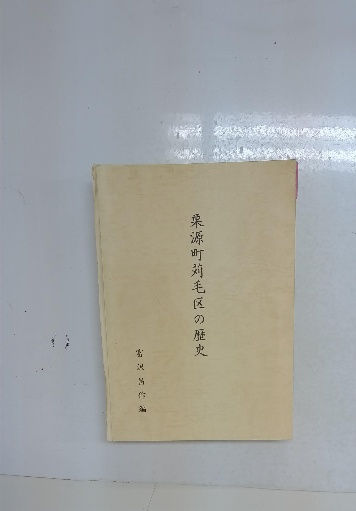 栗源町苅毛区の歴史